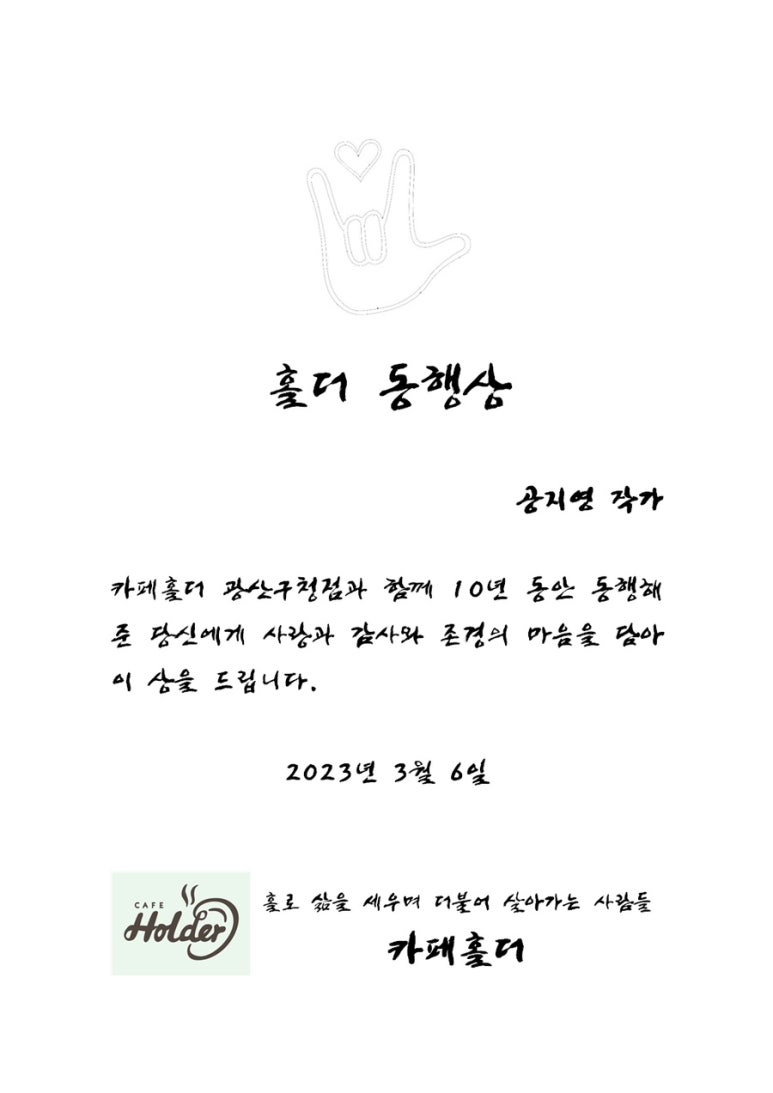 홀더 동행상
공지영 작가
카페홀더 광산구청점과 함께 10년 동안 동행해
준 당신에게 사랑과 감사와 존경의 마음을 담아
이 상을 드립니다.
2023년 3월 6일
CAFE
Holder
홀로 삶을 세우며 더불어 살아가는 사람들
카페홀더